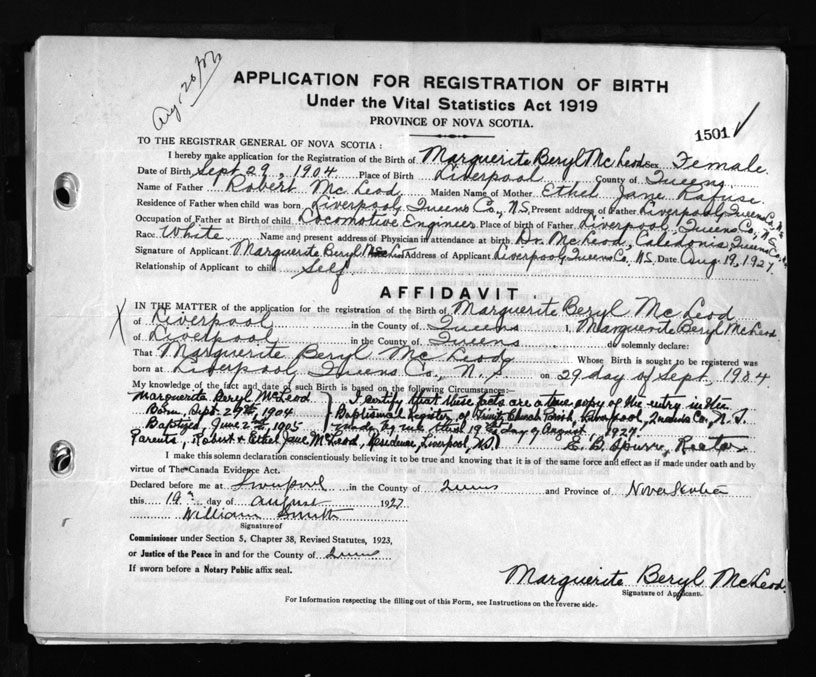 Aug. 20/27
APPLICATION FOR REGISTRATION OF BIRTH
Under the Vital Statistics Act 1919
PROVINCE OF NOVA SCOTIA.
1501 ✓
TO THE REGISTRAR GENERAL OF NOVA SCOTIA :
I hereby make application for the Registration of the Birth of Marguerite Beryl McLeod Sex Female
Date of Birth Sept 29, 1904 Place of Birth Liverpool County of Queens
Name of Father Robert McLeod Maiden Name of Mother Ethel Jane Rafuse
Residence of Father when child was born Liverpool Queens Co., N.S. Present address of Father Liverpool, Queens Co. N.S.
Occupation of Father at Birth of child Locomotive Engineer Place of birth of Father Liverpool, Queens Co., N.S.
Race White Name and present address of Physician in attendance at birth Dr. McLeod, Caledonia Queens Co.
Signature of Applicant Marguerite Beryl Address of Applicant Liverpool, Queens Co., N.S. Date Aug 19, 1927
Relationship of Applicant to child Self
AFFIDAVIT
IN THE MATTER of the application for the registration of the Birth of Marguerite Beryl McLeod
X of Liverpool in the County of Queens I, Marguerite Beryl McLeod
of Liverpool in the County of Queens do solemnly declare:
That Marguerite Beryl McLeod Whose Birth is sought to be registered was
born at Liverpool Queens Co., N.S on 29 day of Sept. 1904
My knowledge of the fact and date of such Birth is based on the following Circumstances:—
Marguerite Beryl McLeod } I certify that these facts are a true copy of the entry in the
Born, Sept. 29th, 1904 Baptismal Register, of Trinity Church Parish, Liverpool, Queens Co., N.S.
Baptized, June 2nd, 1905 made by me this 19th day of August, 1927.
Parents, Robert & Ethel Jane McLeod, Residence, Liverpool, N.S. E. B. Spurr, Rector
I make this solemn declaration conscientiously believing it to be true and knowing that it is of the same force and effect as if made under oath and by
virtue of The Canada Evidence Act.
Declared before me at Liverpool in the County of Queens and Province of Nova Scotia
this 19th day of August 1927
William Smith
Signature of
Commissioner under Section 5, Chapter 38, Revised Statutes, 1923,
or Justice of the Peace in and for the County of Queens
If sworn before a Notary Public affix seal.
Marguerite Beryl McLeod.
Signature of Applicant.
For Information respecting the filling out of this Form, see Instructions on the reverse side.